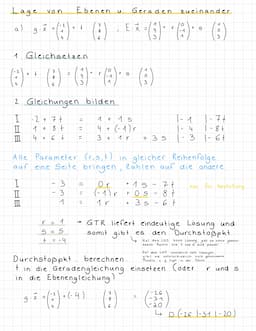 Lage von Ebenen u. Geraden zueinander
a) g: x = (-2 1 4) + t (7 8 6) , E: x = (1 4 3) + r (0 -1 1) + s (1 0 3)
1. Gleichsetzen
(-2 1 4) + t (7 8 6) = (1 4 3) + r (0 -1 1) + s (1 0 3)
2. Gleichungen bilden
I -2 + 7t = 1 + 1s |-1 |-7t
II 1 + 8t = 4 + (-1)r |-4 |-8t
III 4 + 6t = 3 + 1r + 3s |-3 |-6t
Alle Parameter (r,s,t) in gleicher Reihenfolge
auf eine Seite bringen, Zahlen auf die andere
I -3 = 0r + 1s - 7t
II -3 = (-1)r + 0s - 8t
III 1 = 1r + 3s - 6t
→ GTR liefert eindeutige Lösung und
somit gibt es den Durchstoßpkt
Durchstoßpkt. berechnen:
t in die Geradengleichung einsetzen (oder r und s
in die Ebenengleichung)
g: x = + (-4) (7 8 6) = (-26 -31 -20)
↳ D(-26|-31|-20)